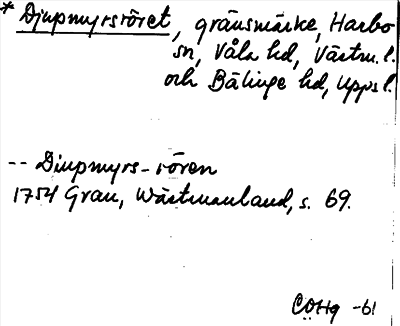 * Djupmyrsröret, gränsmärke, Harbo
sn, Våla hd, Västm. l.
och Bälinge hd, Upps l.
-- Diupmyrs-rören
1754 Grau, Wästmanland, s. 69.
CÖHg -61